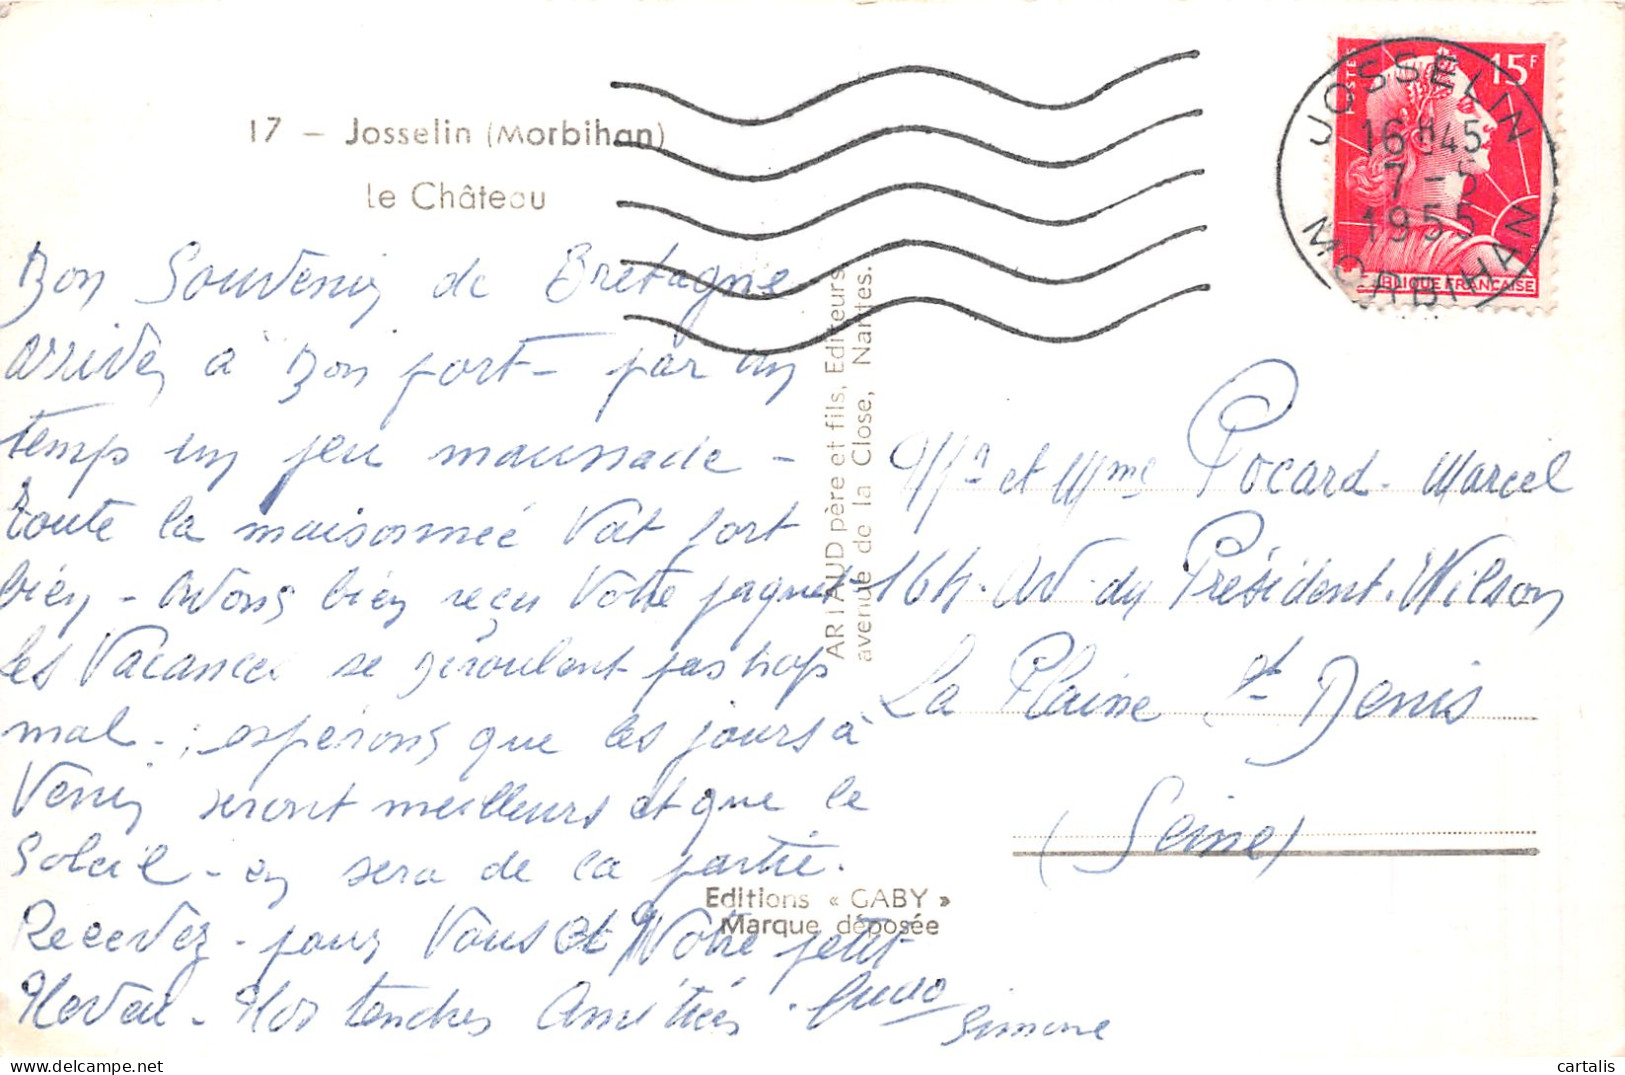 17 - Josselin (Morbihan)
Le Château
Bon Souvenir de Bretagne
arrivés à Bon port - par un
temps un peu maussade -
toute la maisonneé Vat fort
bien - Avons bien reçu Votre paquet
les Vacances se déroulent pas trop
mal - espérons que les jours à
Venir seront meilleurs et que le
Soleil - en sera de la partie.
Recevez - pour Vous et Votre petit
Neveu - Nos tendres Amitiés.
Simone
ARTAUD père et fils, Editeurs
avenue de la Close, Nantes.
Editions « GABY »
Marque déposée
JOSSELIN
16H45
7-
1955
MORBIHAN
POSTES
15F
BLIQUE FRANCAISE
Mr et Mme Pocard. Marcel
164. AV. du Président. Wilson
La Plaine St Denis
(Seine)
cartalis